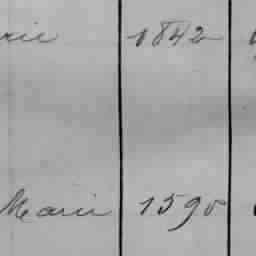 rie 1842
Marie 1590